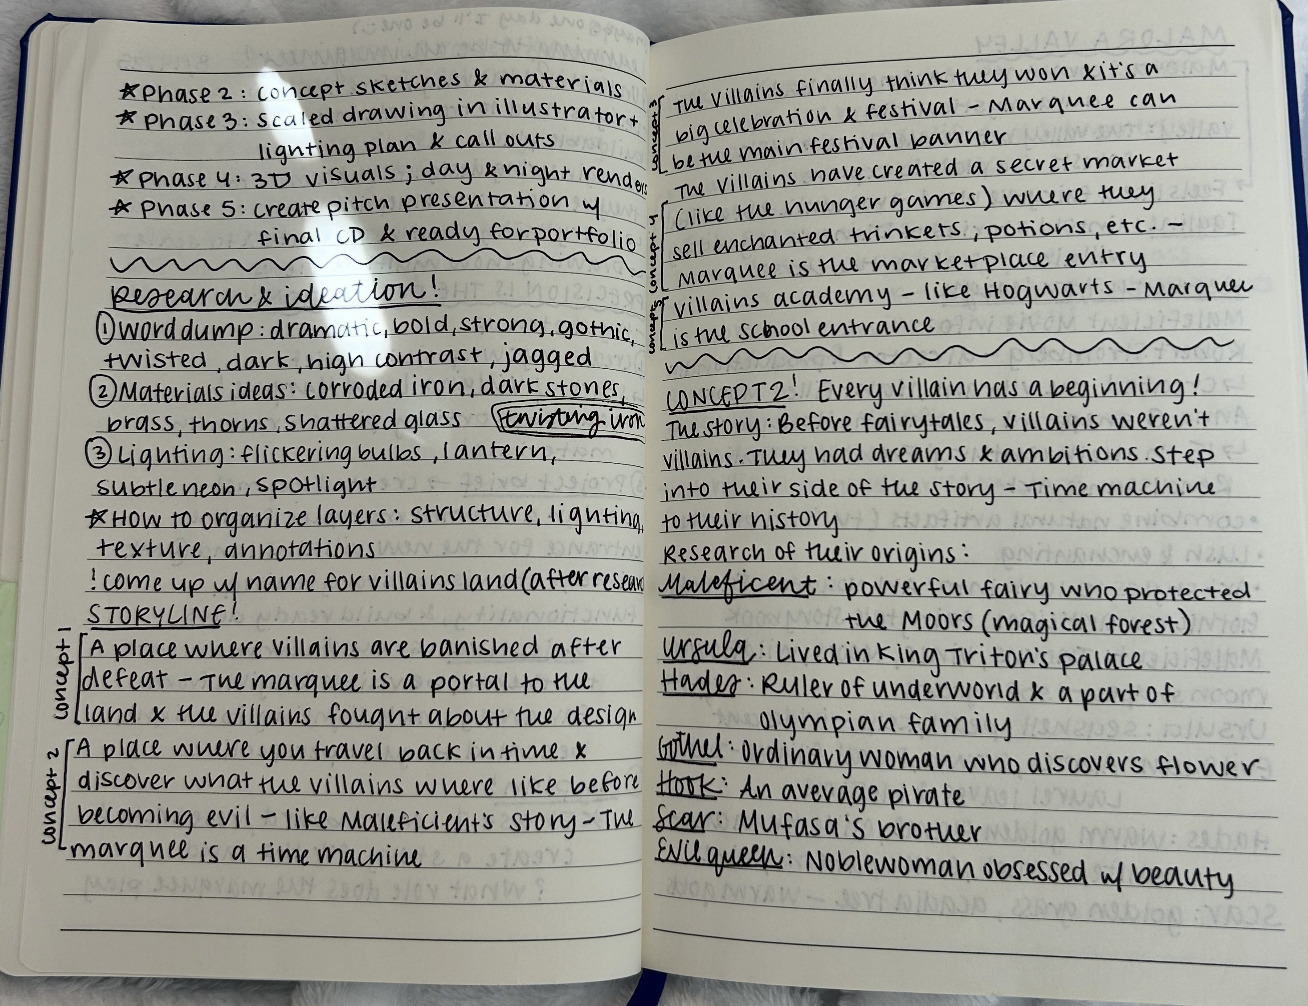 ★ Phase 2: concept sketches & materials
★ Phase 3: scaled drawing in illustrator +
lighting plan & call outs
★ Phase 4: 3D visuals; day & night renders
★ Phase 5: create pitch presentation w/
final CD & ready for portfolio
Research & ideation!
① Word dump: dramatic, bold, strong, gothic,
twisted, dark, high contrast, jagged
② Materials ideas: corroded iron, dark stones,
brass, thorns, shattered glass twisting iron
③ Lighting: flickering bulbs, lantern,
subtle neon, spotlight
★ How to organize layers: structure, lighting,
texture, annotations
! come up w/ name for villains land (after research
STORYLINE!
concept 1
A place where villains are banished after
defeat - The marquee is a portal to the
land & the villains fought about the design
concept 2
A place where you travel back in time &
discover what the villains where like before
becoming evil - like Maleficient's story - The
marquee is a time machine
concept 3
The villains finally think they won & it's a
big celebration & festival - Marquee can
be the main festival banner
concept
The villains have created a secret market
(like the hunger games) where they
sell enchanted trinkets, potions, etc. -
Marquee is the marketplace entry
concept 5
villains academy - like Hogwarts - Marquee
is the school entrance
CONCEPT 2! Every villain has a beginning!
The story: Before fairytales, villains weren't
villains. They had dreams & ambitions. Step
into their side of the story - Time machine
to their history
Research of their origins:
Maleficent: powerful fairy who protected
the Moors (magical forest)
Ursula: Lived in King Triton's palace
Hades: Ruler of underworld & a part of
Olympian family
Gothel: ordinary woman who discovers flower
Hook: An average pirate
Scar: Mufasa's brother
Evil queen: Noblewoman obsessed w/ beauty